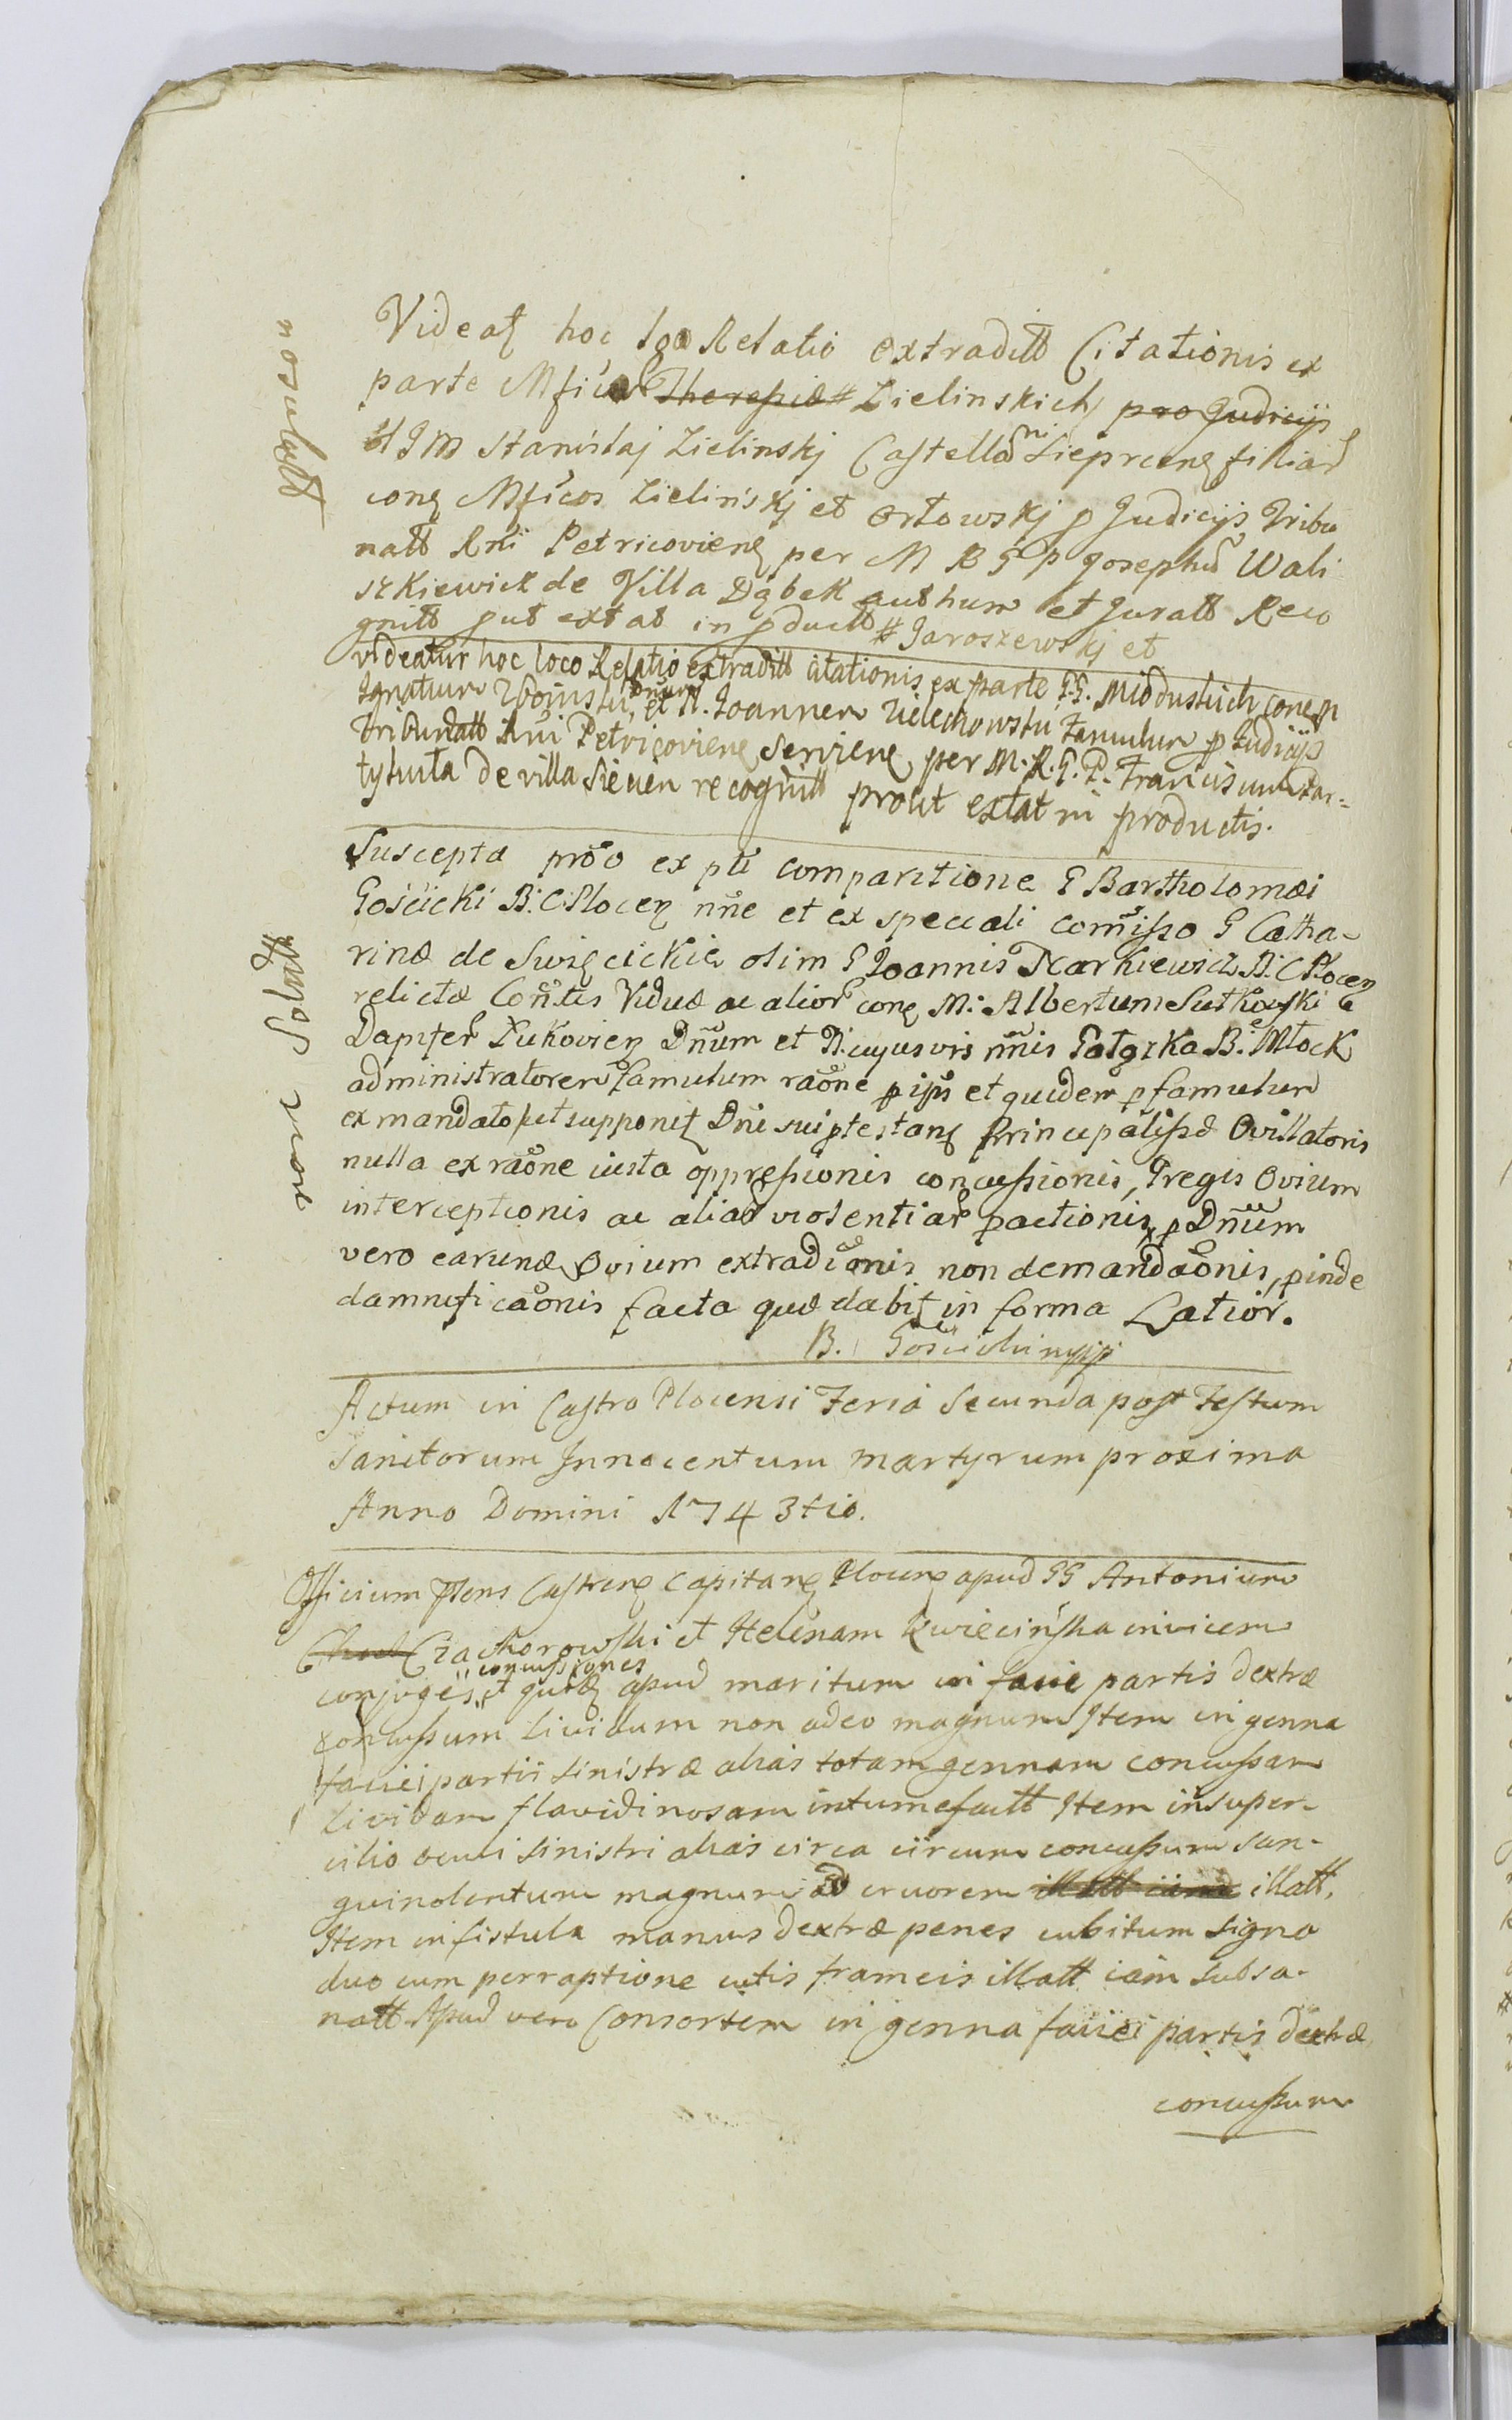 Videat hoc loco Relatio extraditt Citationis ex
parte Mficar Theresiæ # Zielinskich pro Judicijs
Jll JM Stanislaj Zielinskj Castellani Sieprcens filiar
cons Mficos Zielinskj et Orłowskj p Judicijs Tribu
natt Rni Petricoviens per M R G P Josephu Wali
szkiewick de Villa Dąbek authum et Juratt Reco
gnitt put extat in pductt # Jaroszewskj et
videatur hoc loco Relatio extraditt citationis ex parte G.G. Mioduskich cone
Ignatium et N. Joannem Zielechowski Famulum p Judicijs
Tribunatt Rni Petricoviens Serviens per M. R. G. P. Franciscum Par=
tykuła de villa Sieuen recognitt prout extat in productis.
non solutt
Suscepta proo ex pti comparitione G Bartholomæi
Gościcki B. C Plocen nne et ex speciali comisso G Catha-
rinæ de Święcickie olim G Joannis Markiewicz B. C Plocen
relictæ Contis Viduæ ac alior cons M. Albertum Sutkowski
Dapifer Łukovien Dnum et N. cujusvis nnis Gałązka B. Młock
administratorem famulum raone pijs et quidem p famulum
ex mandato ut supponit Dni sui ptestans Principalissæ Ovillatoris
nulla ex raone iusta oppressionis concussionis, Gregis Ovium
interceptionis ac aliar violentiar pactionis p Dnum
vero earundæ Ovium extradionis non demandaonis, pinde
damnificaonis facta quæ dabit in forma Latior.
B. Gościcki mpp
non Solutt
Actum in Castro Plocensi Feria Secunda post Festum
Sanctorum Innocentum Martyrum proxima
Anno Domini 1743tio.
Officium Psens Castrens Capitans Plocens apud GG Antonium
Chod Czachorowski et Helenam Kwiecińska invicem
conjuges et concussiones apud maritum in facie partis dextræ
concussum lividum non adeo magnum Item in genna
faciei partis sinistræ alias totam gennam concussam
lividam flavidinosam intumefactt Item in super-
cilio oculi sinistri alias circa circum concussum san-
guinolentum magnum ad cruorem illatt illatt.
Item in fistula manus dextræ penes cubitum signa
duo cum perraptione cutis frameis illatt iam subsa-
natt Apud vero Consortem in genna faciei partis dextræ
concussum